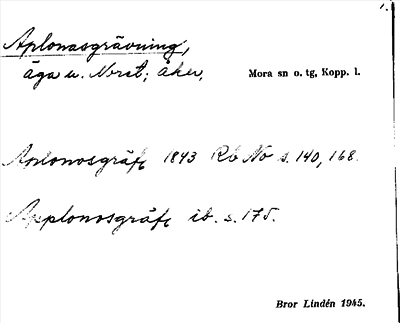 1.
Aplonasgrävning,
äga u. Noret; åker,
Mora sn o. tg, Kopp. l.
Aplonosgräfn 1843 Rb No s. 140, 168.
Applonosgräfn ib. s. 175.
Bror Lindén 1945.